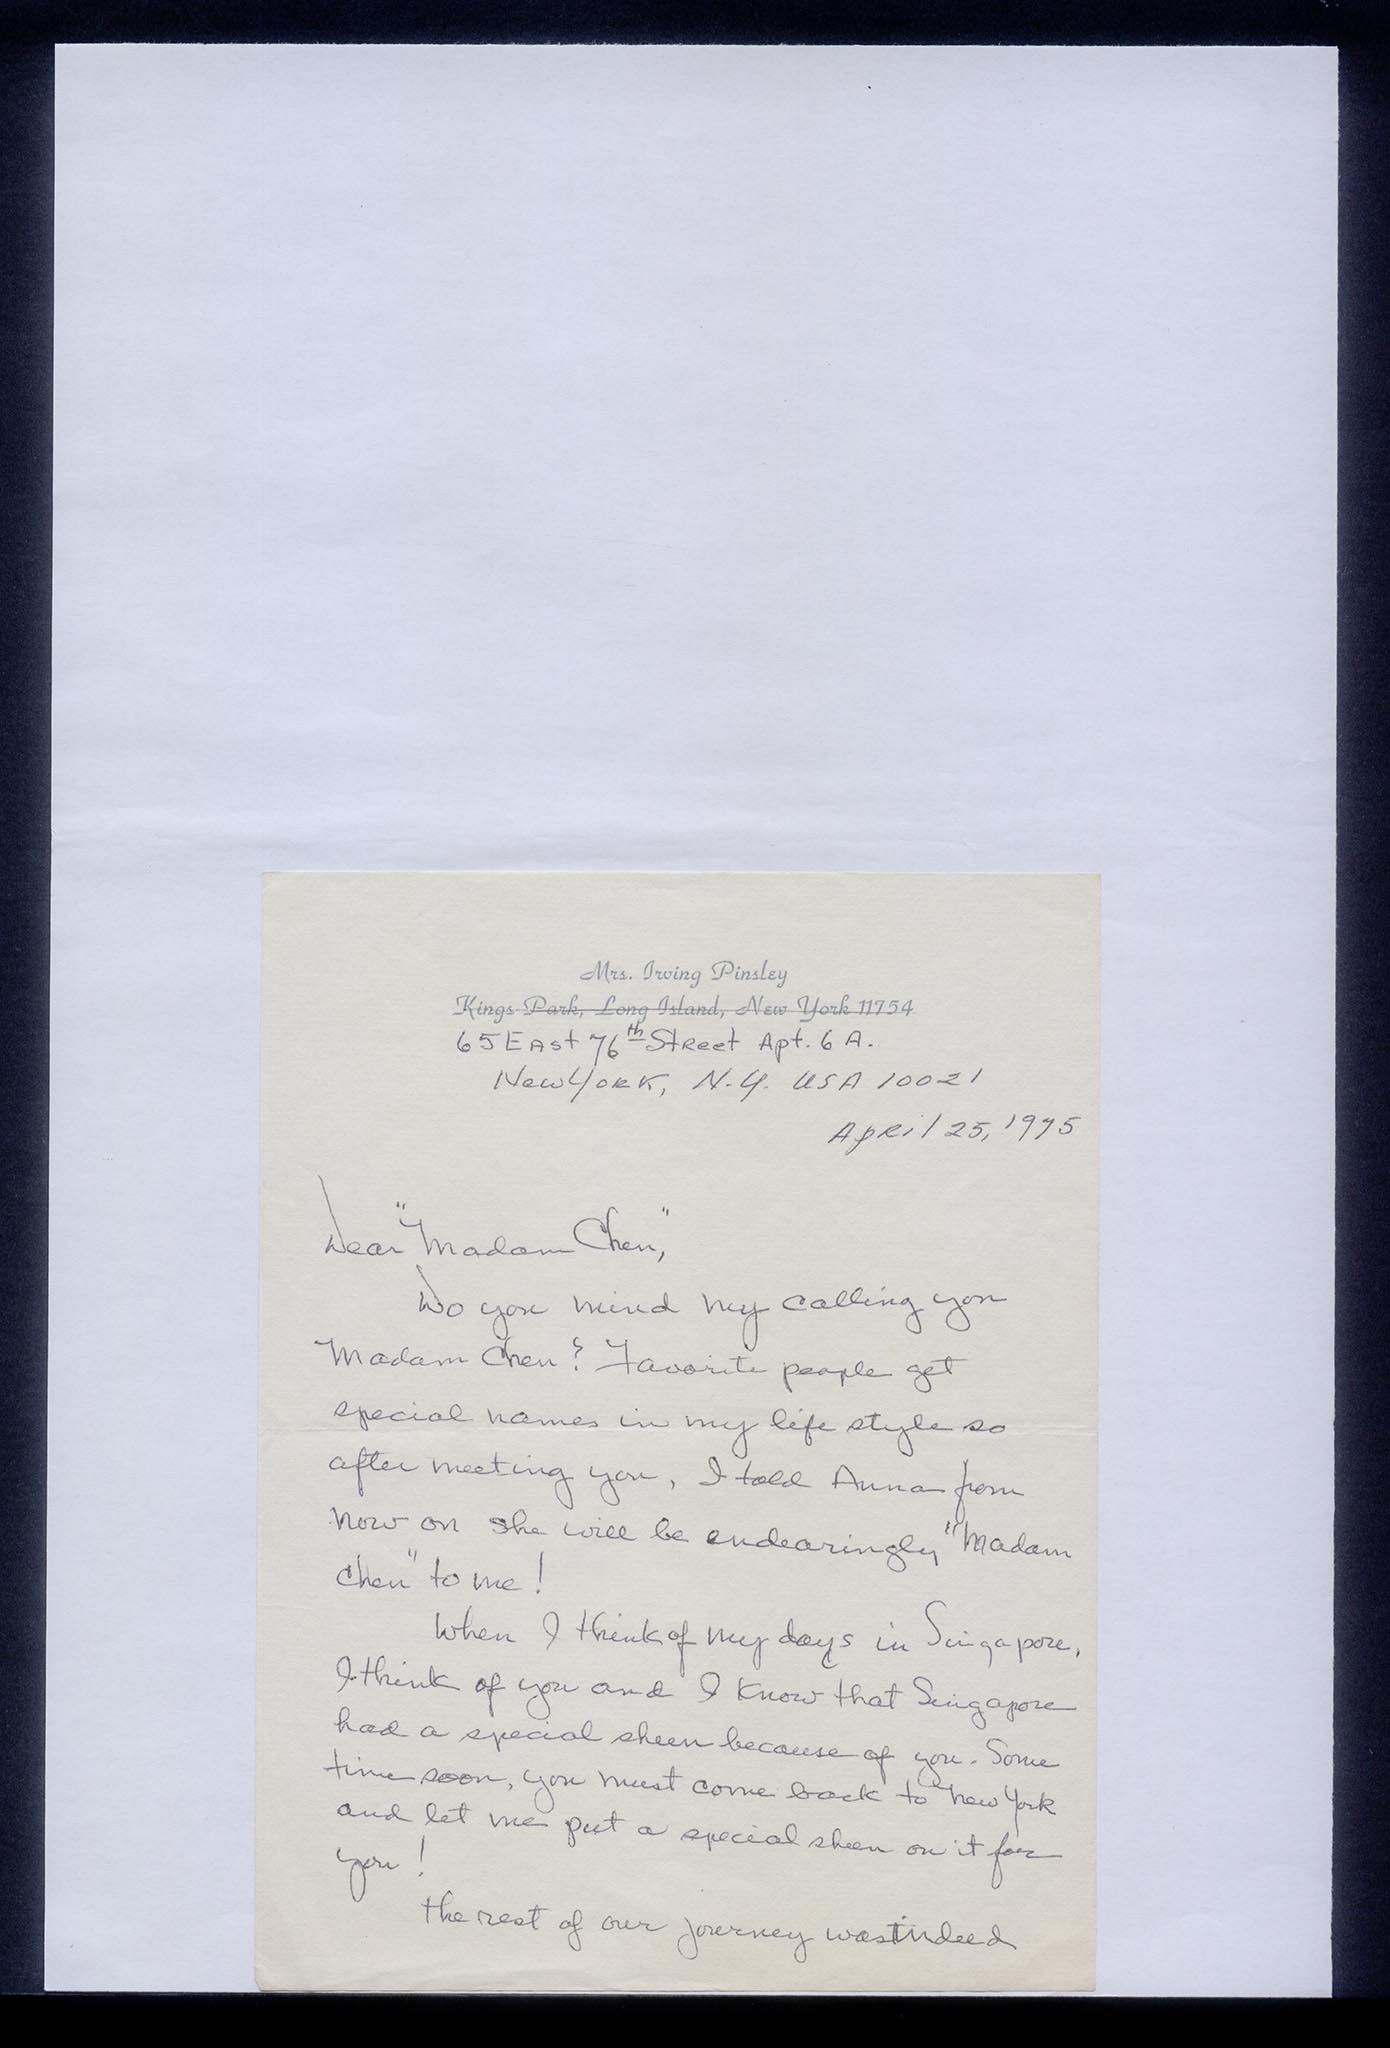 Mrs. Irving Pinsley
Kings Park, Long Island, New York 11754
65 East 76th Street Apt. 6A.
New York, N.Y. USA 10021
April 25, 1975
Dear "Madam Chen,"
Do you mind my calling you
Madam Chen? Favorite people get
special names in my life style so
after meeting you, I told Anna from
now on she will be endearingly "Madam
Chen" to me!
When I think of my days in Singapore,
I think of you and I know that Singapore
had a special sheen because of you. Some
time soon, you must come back to New York
and let me put a special sheen on it for
you!
The rest of our journey was indeed